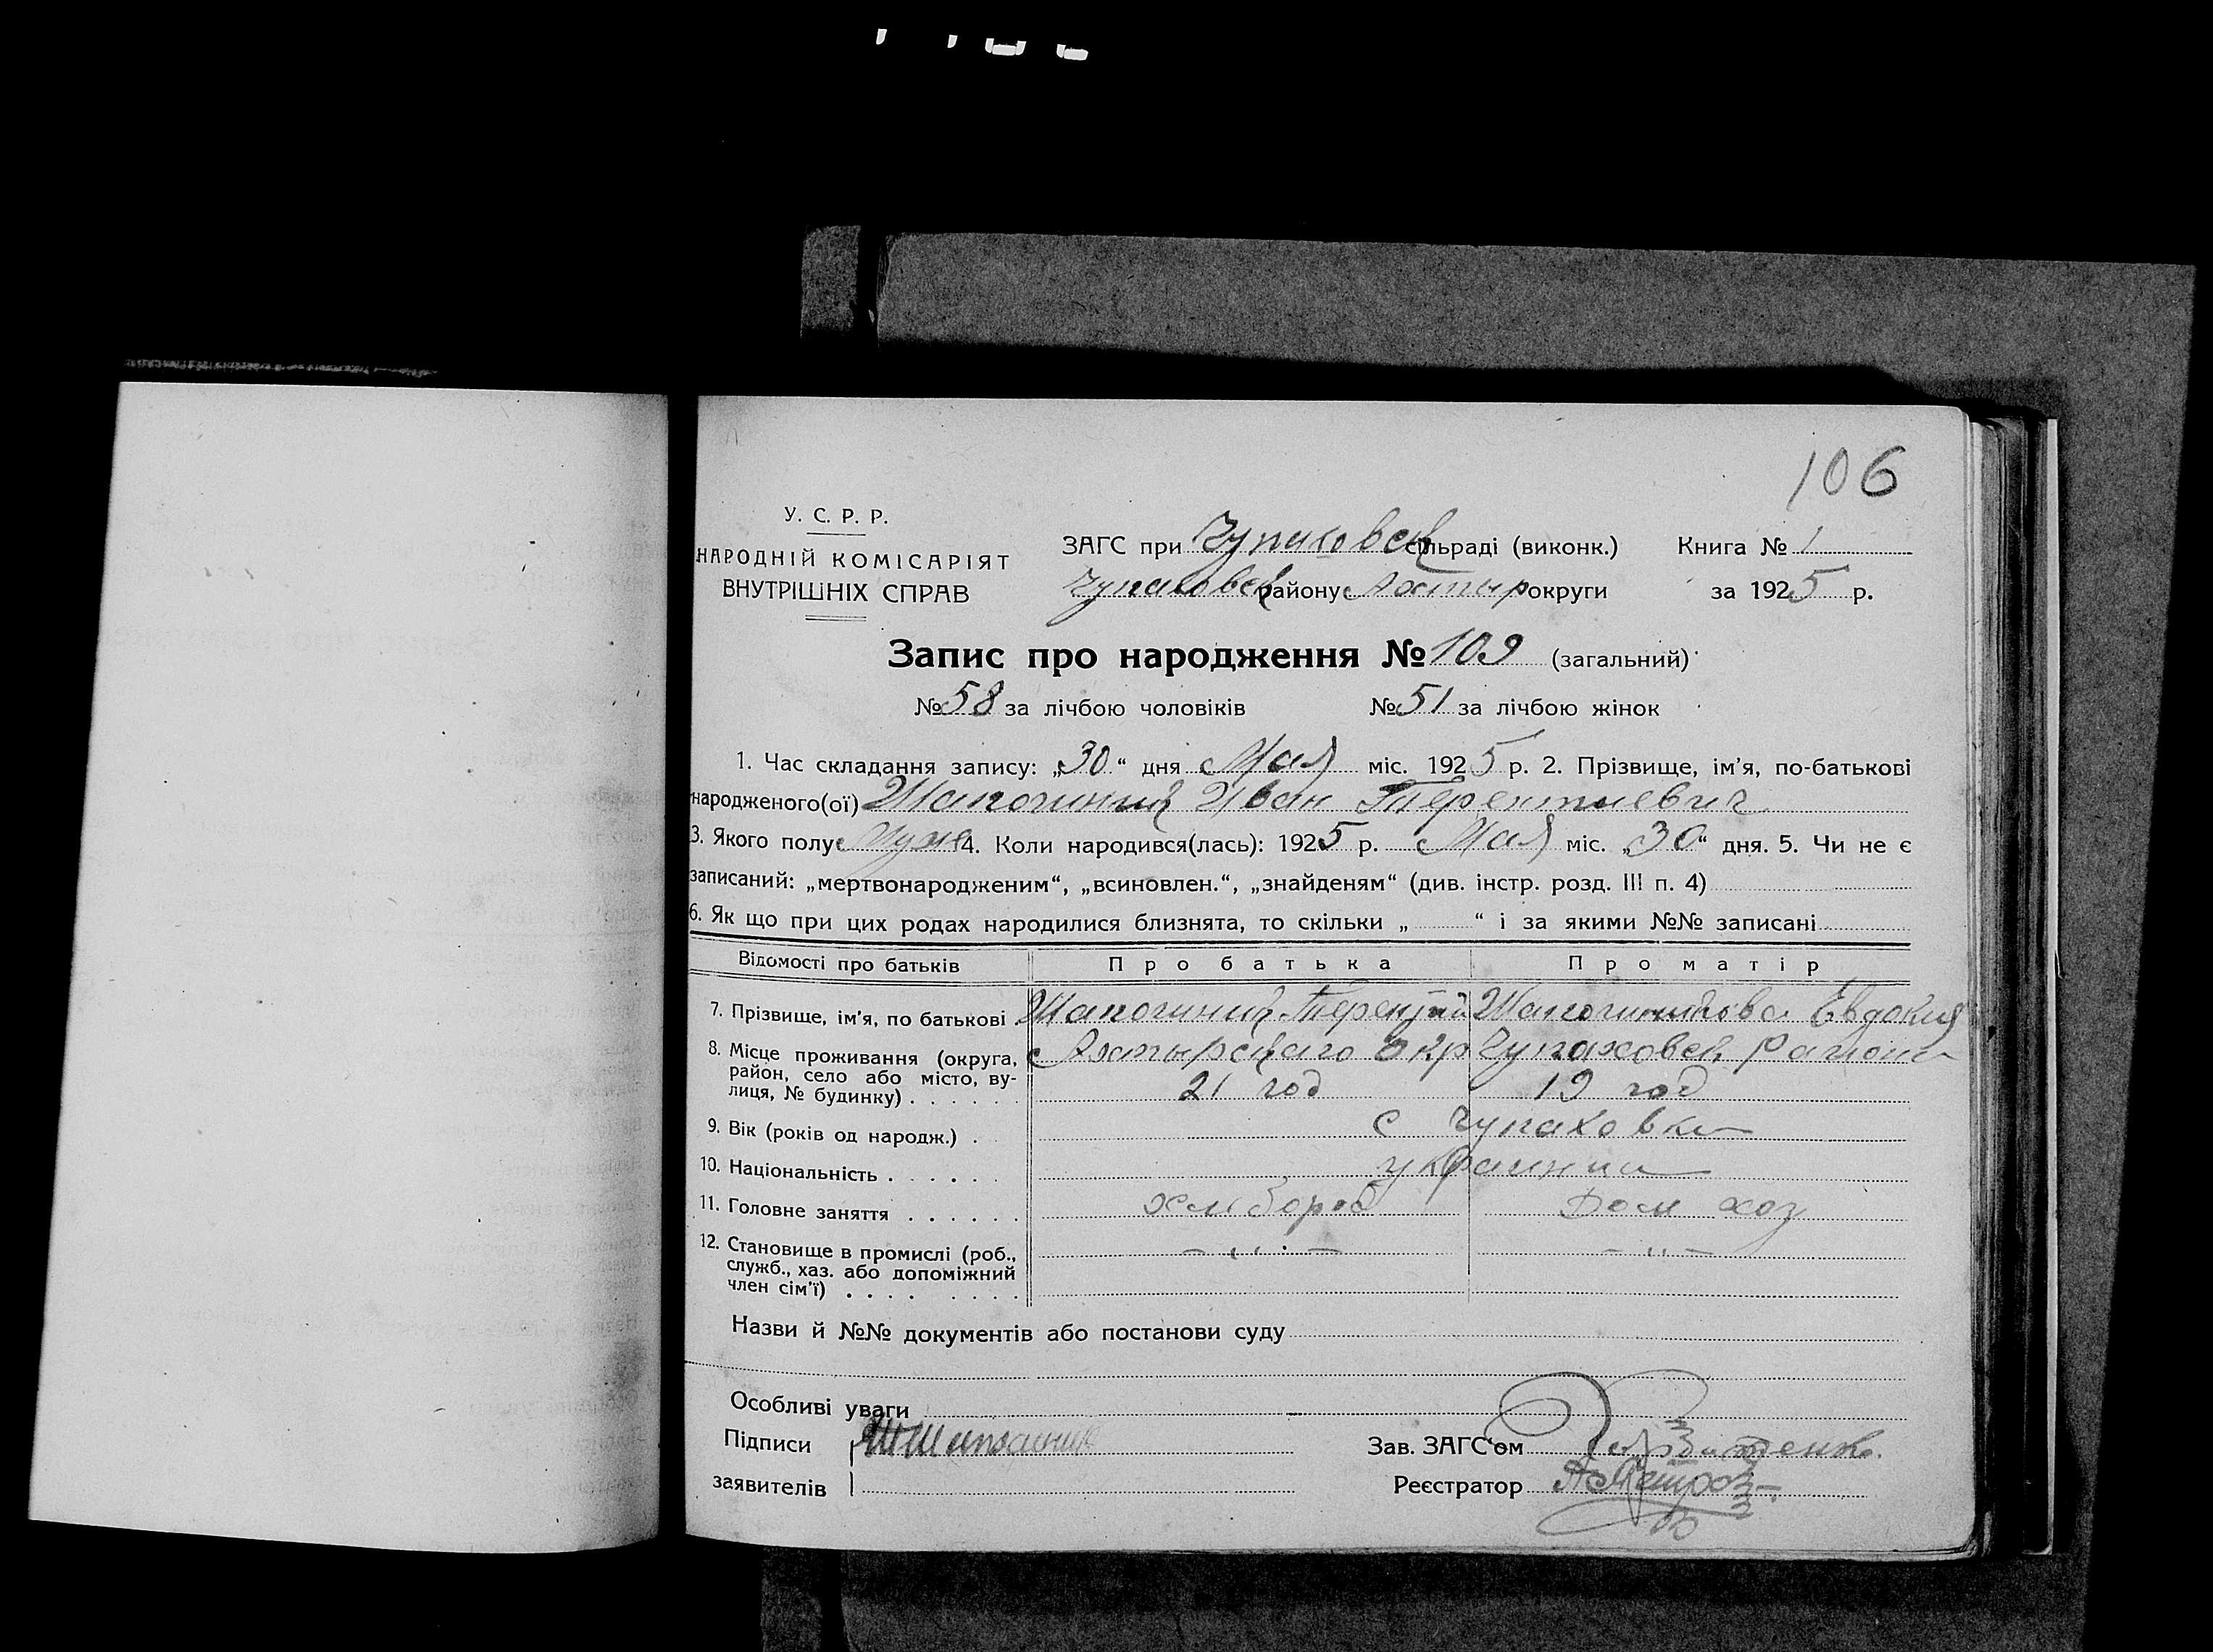 106
У. С. Р. Р.
НАРОДНІЙ КОМІСАРІЯТ
ВНУТРІШНІХ СПРАВ
ЗАГС при Чупаховск сільраді (виконк.) Книга № 1
Чупаховск району Ахтыр округи за 1925 р.
Запис про народження № 109 (загальний)
№ 58 за лічбою чоловіків № 51 за лічбою жінок
1. Час складання запису: „30“ дня Мая міс. 1925 р. 2. Прізвище, ім’я, по-батькові
народженого(ої) Шапочник Иван Терентиевич
3. Якого полу Муж 4. Коли народився(лась): 1925 р. Мая міс. „30“ дня. 5. Чи не є
записаний: „мертвонародженим“, „всиновлен.“, „знайденям“ (див. інстр. розд. III п. 4)
6. Як що при цих родах народилися близнята, то скільки „ “ і за якими №№ записані
Відомості про батьків Про батька Про матір
7. Прізвище, ім’я, по батькові Шапочник Терентий Евдокия
8. Місце проживання (округа, район, село або місто, вулиця, № будинку) Ахтырскаго окр Чупаховск района
21 год 19 год
9. Вік (років од народж.) с Чупаховки
10. Національність украинци
11. Головне заняття хлибороб Дом хоз
12. Становище в промислі (роб., служб., хаз. або допоміжний член сім’ї) — „ — — „ —
Назви й №№ документів або постанови суду
Особливі уваги
Підписи Зав. ЗАГС’ом
заявителів Реєстратор